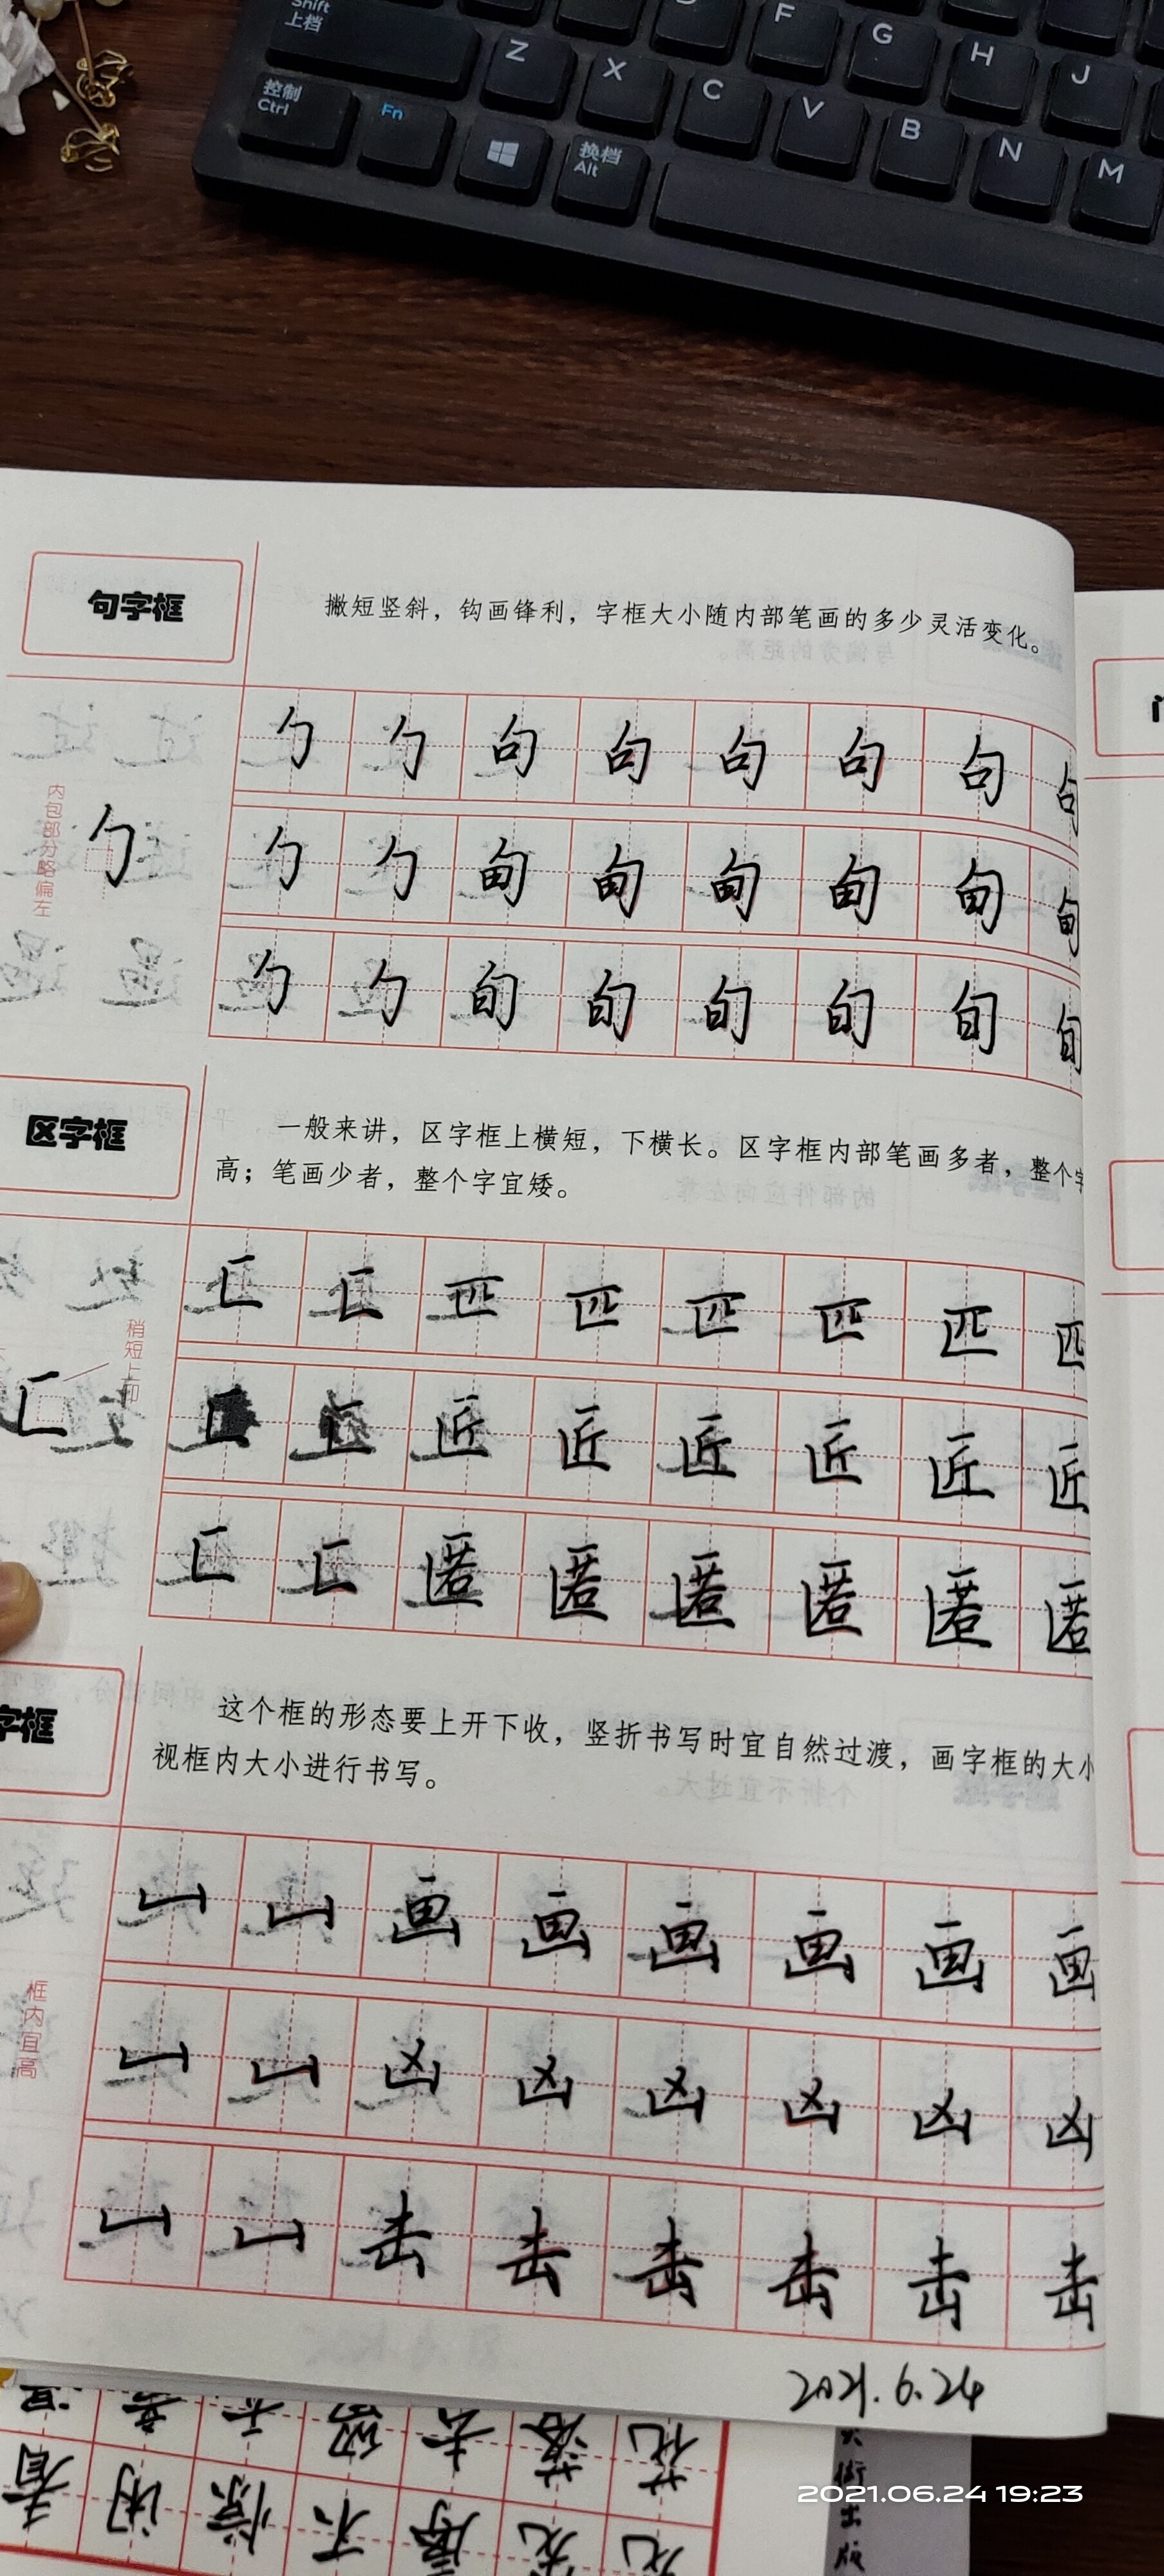 Shift
上档
F
G
H
J
Z
X
C
V
B
N
M
控制
Ctrl
Fn
换档
Alt
句字框
撇短竖斜，钩画锋利，字框大小随内部笔画的多少灵活变化。
勹 勹 句 句 句 句 句 句
内包部分略偏左
勹
勹 勹 甸 甸 甸 甸 甸 甸
勹 勹 旬 旬 旬 旬 旬 旬
区字框
一般来讲，区字框上横短，下横长。区字框内部笔画多者，整个字
高；笔画少者，整个字宜矮。
匚 匚 匹 匹 匹 匹 匹 匹
稍短上仰
匚
匚 匚 匠 匠 匠 匠 匠 匠
匚 匚 匿 匿 匿 匿 匿 匿
字框
这个框的形态要上开下收，竖折书写时宜自然过渡，画字框的大小
视框内大小进行书写。
凵 凵 画 画 画 画 画 画
框内宜高
凵 凵 凶 凶 凶 凶 凶 凶
凵 凵 击 击 击 击 击 击
2021.6.24
2021.06.24 19:23